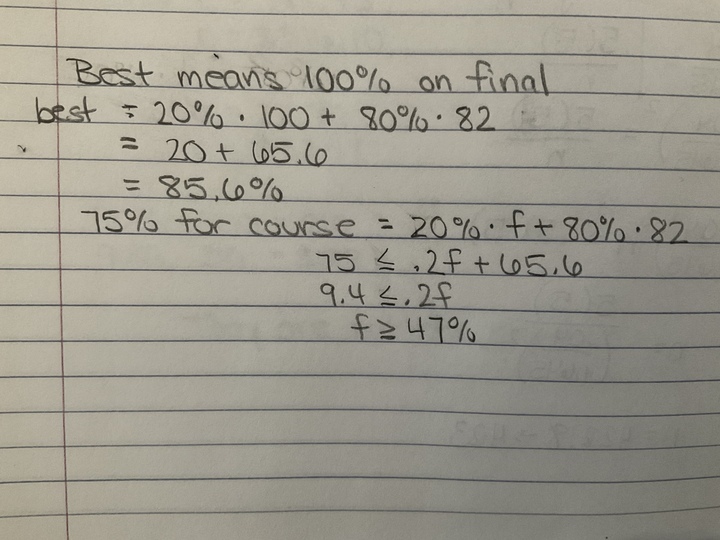 Best means 100% on final
best = 20% · 100 + 80% · 82
= 20 + 65.6
= 85.6%
75% for course = 20% · f + 80% · 82
75 ≤ .2f + 65.6
9.4 ≤ .2f
f ≥ 47%